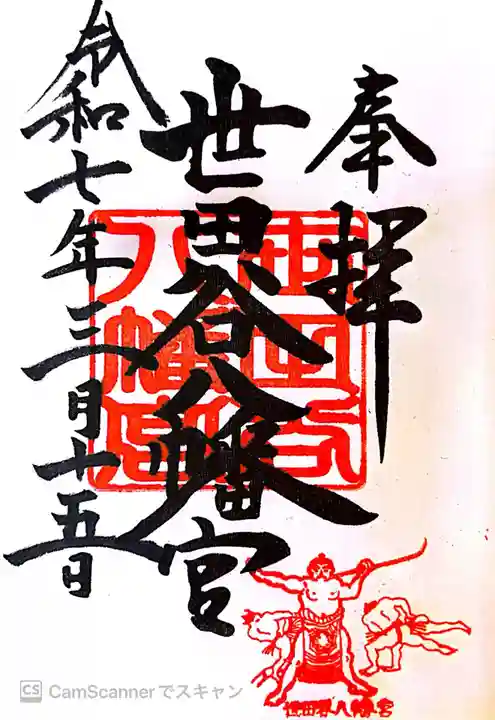 奉拝
世田谷八幡宮
世田谷
八幡宮
令和七年三月十五日
世田谷八幡宮
CS CamScannerでスキャン